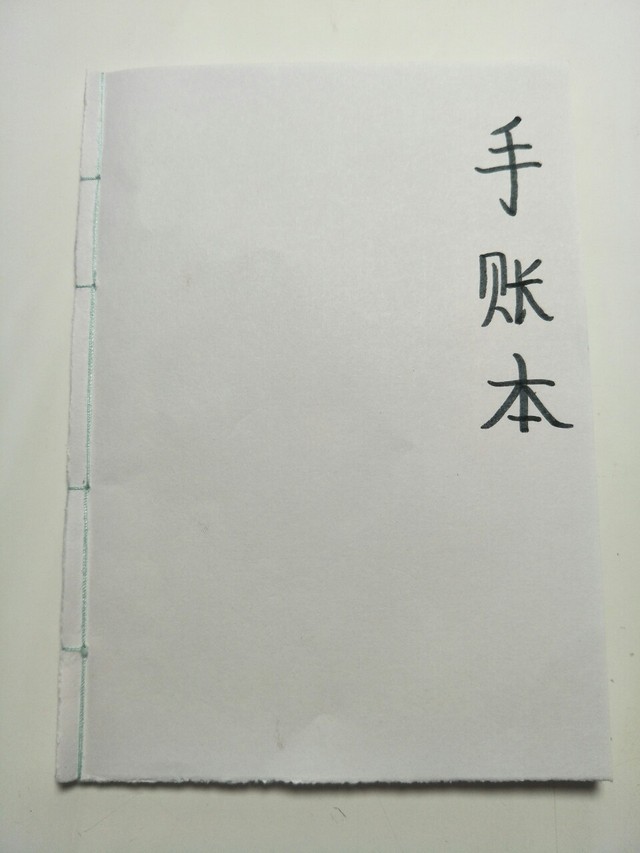 手账本